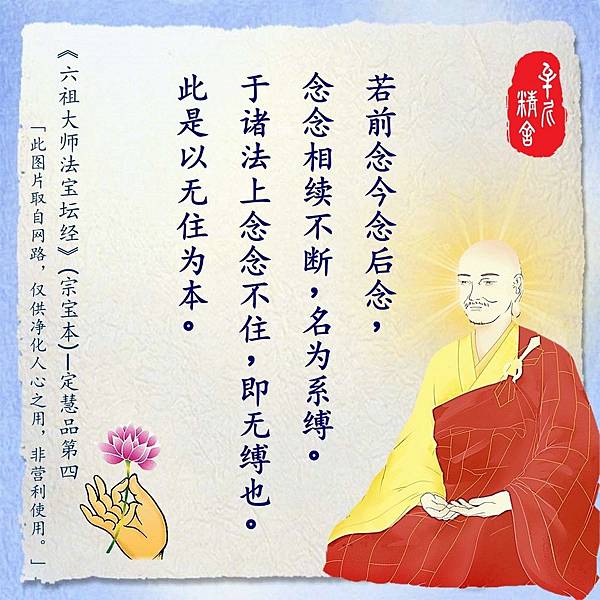 若前念今念后念，
念念相续不断，名为系缚。
于诸法上念念不住，即无缚也。
此是以无住为本。
《六祖大师法宝坛经》(宗宝本)—定慧品第四
「此图片取自网路，仅供净化人心之用，非营利使用。」
精舍